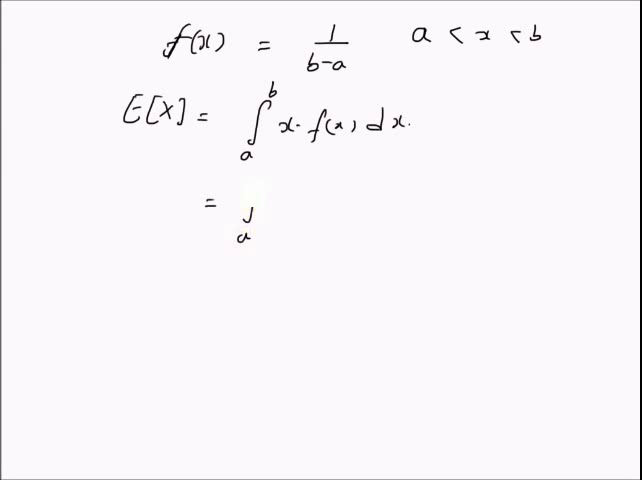 f(x) = 1/(b-a) a < x < b
E[X] = ∫_a^b x. f(x) dx.
= ∫_a